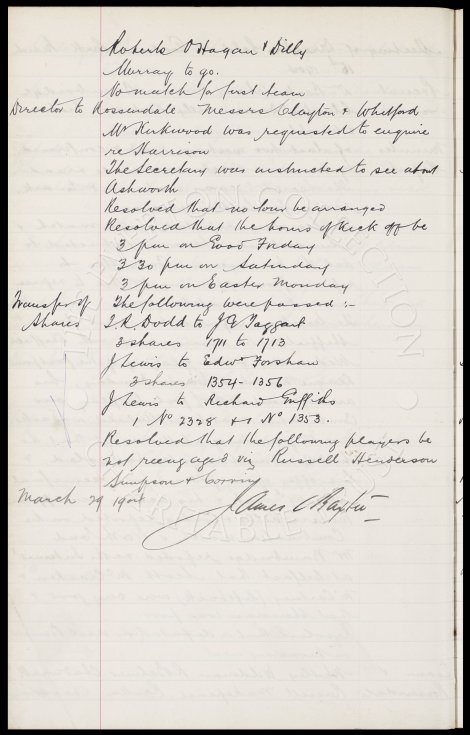 Roberts O'Hagan & Dilly
Murray to go.
No match for first team
Director to Rossendale Messrs Clayton & Whitford
Mr Kirkwood was requested to enquire
re Harrison
The Secretary was instructed to see about
Ashworth
Resolved that no tour be arranged
Resolved that the hours of kick off be
3 pm on Good Friday
3 30 pm on Saturday
3 pm on Easter Monday
Transfer of Shares
The following were passed :-
T.R. Dodd to J G Taggart
3 shares 1711 to 1713
J Lewis to Edwd Forshaw
3 shares 1354-1356
J Lewis to Richard Griffiths
1 No 2328 & 1 No 1353.
Resolved that the following players be
not reengaged viz Russell Henderson
Simpson &
March 29 190
James C Baxter